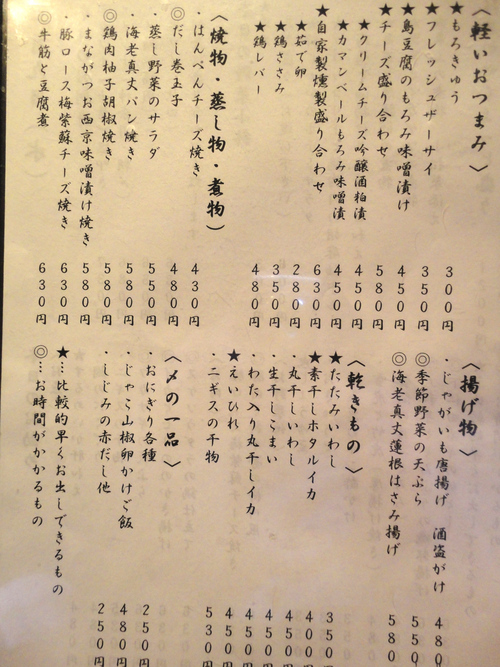 〈軽いおつまみ〉
★もろきゅう 300円
★フレッシュザーサイ 350円
★島豆腐のもろみ味噌漬け 450円
★チーズ盛り合わせ 580円
★クリームチーズ吟醸酒粕漬 450円
★カマンベールもろみ味噌漬 450円
★自家製燻製盛り合わせ 630円
★茹で卵 280円
★鶏ささみ 350円
★鶏レバー 480円
〈焼物・蒸し物・煮物〉
・はんぺんチーズ焼き 430円
◎だし巻玉子 480円
・蒸し野菜のサラダ 550円
・海老真丈パン焼き 580円
◎鶏肉柚子胡椒焼き 580円
・まながつお西京味噌漬け焼き 580円
・豚ロース梅紫蘇チーズ焼き 630円
◎牛筋と豆腐煮 630円
〈揚げ物〉
・じゃがいも唐揚げ 酒盗がけ 480
◎季節野菜の天ぷら 550
◎海老真丈蓮根はさみ揚げ 580
〈乾きもの〉
★たたみいわし 350
★素干しホタルイカ 400円
・丸干しいわし 450円
・生干しこまい 450円
・わた入り丸干しイカ 450円
★えいひれ 450円
・ニギスの干物 530円
〈〆の一品〉
・おにぎり各種 250円
・じゃこ山椒卵かけご飯 480円
・しじみの赤だし他 250円
★…比較的早くお出しできるもの
◎…お時間がかかるもの